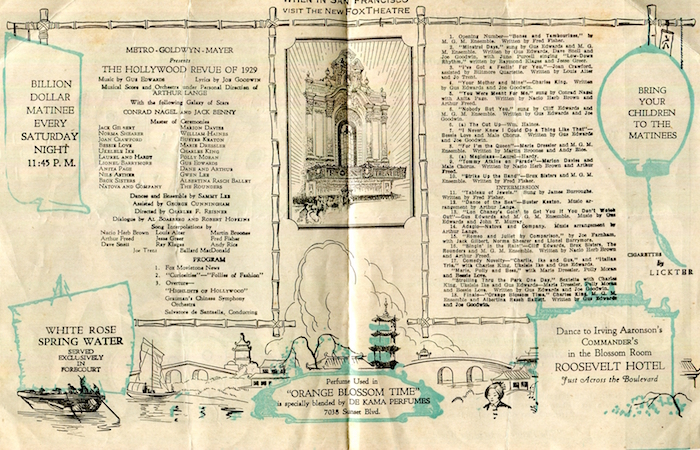 WHEN IN SAN FRANCISCO
VISIT THE NEW FOX THEATRE
BILLION
DOLLAR
MATINEE
EVERY
SATURDAY
NIGHT
11:45 P. M.
METRO-GOLDWYN-MAYER
Presents
THE HOLLYWOOD REVUE OF 1929
Music by GUS EDWARDS Lyrics by JOE GOODWIN
Musical Score and Orchestra under Personal Direction of
ARTHUR LANGE
With the following Galaxy of Stars
CONRAD NAGEL AND JACK BENNY
Master of Ceremonies
JACK GILBERT MARION DAVIES
NORMA SHEARER WILLIAM HAINES
JOAN CRAWFORD BUSTER KEATON
BESSIE LOVE MARIE DRESSLER
UKELELE IKE CHARLES KING
LAUREL AND HARDY POLLY MORAN
LIONEL BARRYMORE GUS EDWARDS
ANITA PAGE DANE AND ARTHUR
NILS ASTHER GWEN LEE
BROX SISTERS ALBERTINA RASCH BALLET
NATOVA AND COMPANY THE ROUNDERS
Dances and Ensemble by SAMMY LEE
Assisted by GEORGE CUNNINGHAM
Directed by CHARLES F. REISNER
Dialogue by AL BOASBERG AND ROBERT HOPKINS
Song Interpolations by
Nacio Herb Brown Louis Alter Martin Broones
Arthur Freed Jesse Greer Fred Fisher
Dave Snell Ray Klages Andy Rice
Joe Trent Ballard MacDonald
PROGRAM
1. FOX MOVIETONE NEWS
2. "CURIOSITIES"—"FOLLIES OF FASHION"
3. OVERTURE—
"HIGHLIGHTS OF HOLLYWOOD"
Grauman's Chinese Symphony
Orchestra
Salvatore de Santaella, Conducting
WHITE ROSE
SPRING WATER
SERVED
EXCLUSIVELY
IN
FORECOURT
Perfume Used in
"ORANGE BLOSSOM TIME"
is specially blended by DE KAMA PERFUMES
7038 Sunset Blvd.
1. Opening Number—"Bones and Tambourines," by
M. G. M. Ensemble. Written by Fred Fisher.
2. "Minstrel Days," sung by Gus Edwards and M. G.
M. Ensemble. Gus Edwards, Dave Snell and
Joe Goodwin, with John Purcell singing "Low-Down
Rhythm," written by Raymond Klages and Jesse Greer.
3. "I've Got a Feelin' For You"—Joan Crawford,
assisted by Biltmore Quartette. Written by Louis Alter
and Jo Trent.
4. "Your Mother and Mine"—Charles King. Written
by Gus Edwards and Joe Goodwin.
5. "You Were Meant For Me," sung by Conrad Nagel
with Anita Page. Written by Nacio Herb Brown and
Arthur Freed.
6. "Nobody But You," sung by Cliff Edwards and M.
G. M. Ensemble. Written by Gus Edwards and Joe
Goodwin.
(a) The Cut Up—Wm. Haines.
7. "I Never Knew I Could Do a Thing Like That"—
Bessie Love and Male Chorus. Written by Gus Edwards
and Joe Goodwin.
8. "For I'm the Queen"—Marie Dressler and M. G. M.
Ensemble. Written by Martin Broones and Andy Rice.
(a) Magicians—Laurel-Hardy.
"Tommy Atkins on Parade"—Marion Davies and
Male Chorus. Written by Nacio Herb Brown and Arthur
Freed.
"Strike Up the Band"—Brox Sisters and M. G. M.
Ensemble. Written by Fred Fisher.
INTERMISSION
11. "Tableau of Jewels." Sung by James Burroughs.
Written by Fred Fisher.
12. "Dance of the Sea"—Buster Keaton. Music arrangement
by Arthur Lange.
13. "Lon Chaney's Goin' to Get You If You Don't Watch
Out"—Gus Edwards and M. G. M. Ensemble. Music by Gus
Edwards and John T. Murray.
14. Adagio—Natova and Company. Music arrangement by
Arthur Lange.
15. "Romeo and Juliet by Comparison," by Joe Farnham,
with Jack Gilbert, Norma Shearer and Lionel Barrymore.
16. "Singin' in the Rain"—Cliff Edwards, Brox Sisters, The
Rounders and M. G. M. Ensemble. Written by Nacio Herb Brown
and Arthur Freed.
17. Comedy Novelty—"Charlie, Ike and Gus," and "Italian
Trio" with Charles King, Ukulele Ike and Gus Edwards.
"Marie, Polly and Bess," with Marie Dressler, Polly Moran
and Bessie Love.
"Strolling Thru the Park One Day," Sextette with Charles
King, Ukulele Ike and Gus Edwards—Marie Dressler, Polly Moran
and Bessie Love. Written by Gus Edwards and Joe Goodwin.
18. Finale—"Orange Blossom Time," Charles King, M. G. M.
Ensemble and Albertina Rasch Ballet. Written by Gus Edwards
and Joe Goodwin.
BRING
YOUR
CHILDREN
TO THE
MATINEES
CIGARETTES
By
LICKTER
Dance to Irving Aaronson's
COMMANDER'S
in the Blossom Room
ROOSEVELT HOTEL
Just Across the Boulevard